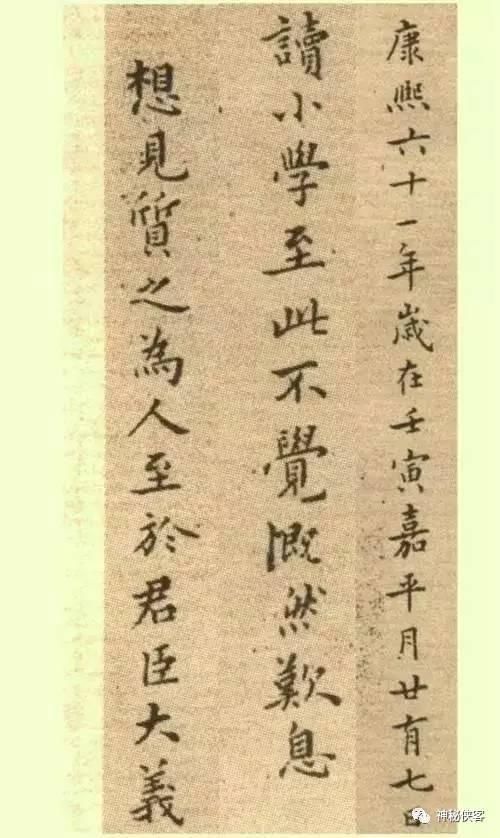 康熙六十一年歲在壬寅嘉平月廿有七日
讀小學至此不覺慨然歎息
想見質之為人至於君臣大義
神秘侠客